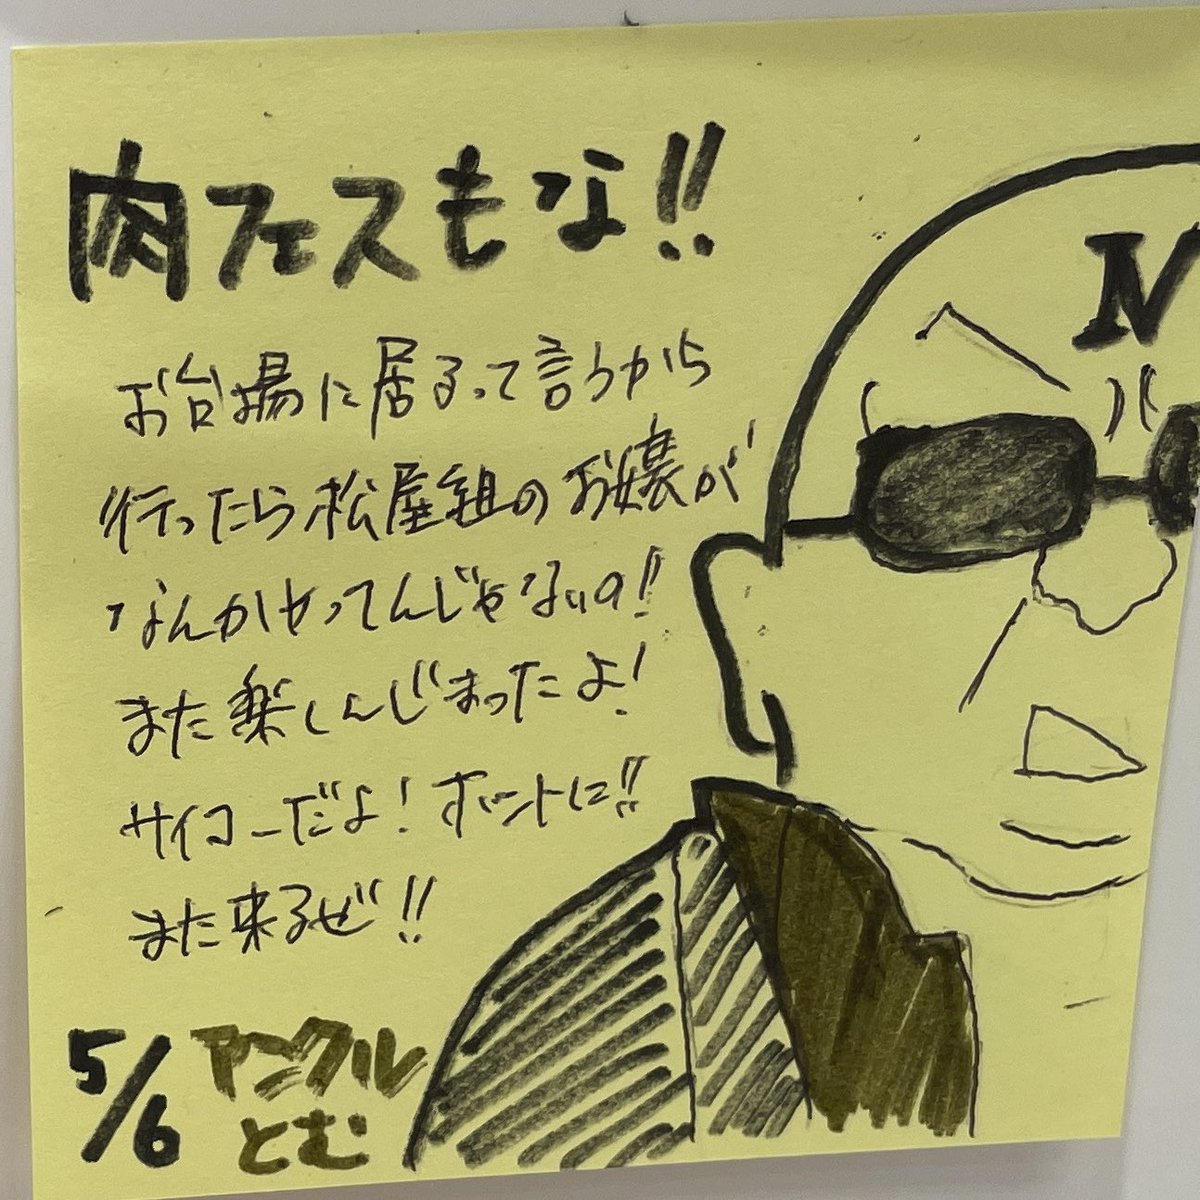 肉フェスもな!!
お台場に居るって言うから
行ったら松屋組のお嬢が
なんかやってんじゃないの!!
また楽しんじまったよ!
サイコーだよ!ホントに!!
また来るぜ!!
5/6
アンクル
とむ
N